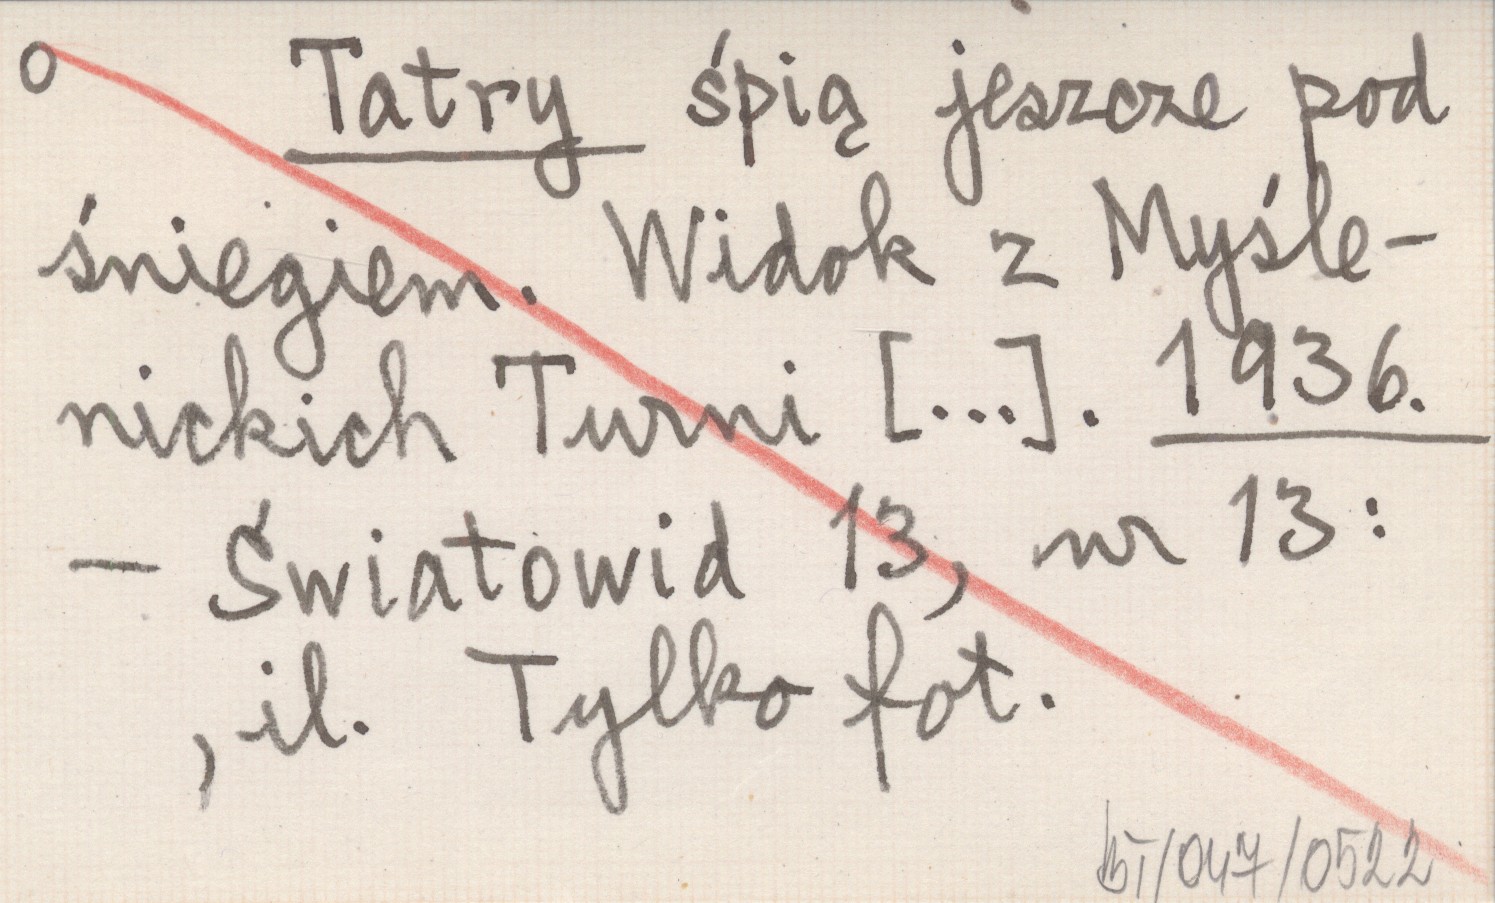 o Tatry śpią jeszcze pod
śniegiem. Widok z Myśle-
nickich Turni [...]. 1936.
— Światowid 13, nr 13:
, il. Tylko fot.
BT/047/0522